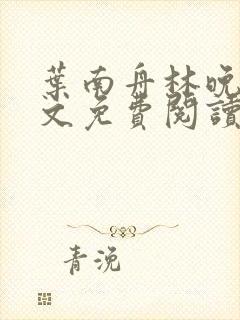 葉南舟林晚
文免費閱讀
青浼